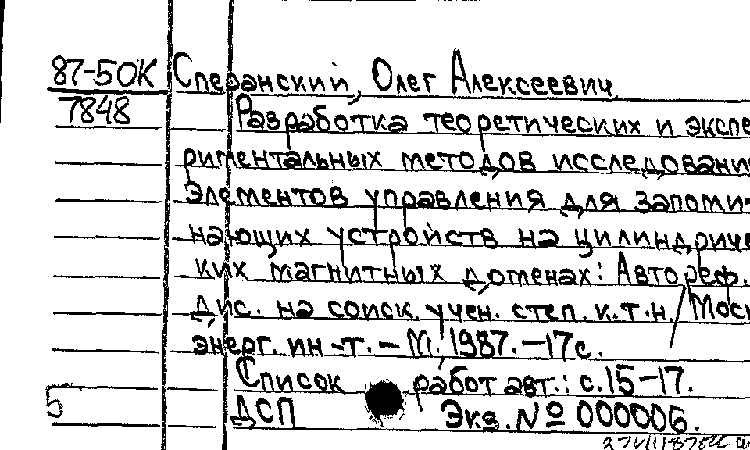 87-50К Сперанский, Олег Алексеевич
7848 Разработка теоретических и экспе
риментальных методов исследовани
элементов управления для запоми-
нающих устройств на цилиндриче
ких магнитных доменах: Автореф.
дис. на соиск. учен. степ. к.т.н. / Моск
энерг. ин-т. - М., 1987. - 17 с.
Список работ авт.: с. 15-17.
5 ДСП Экз. № 000006.